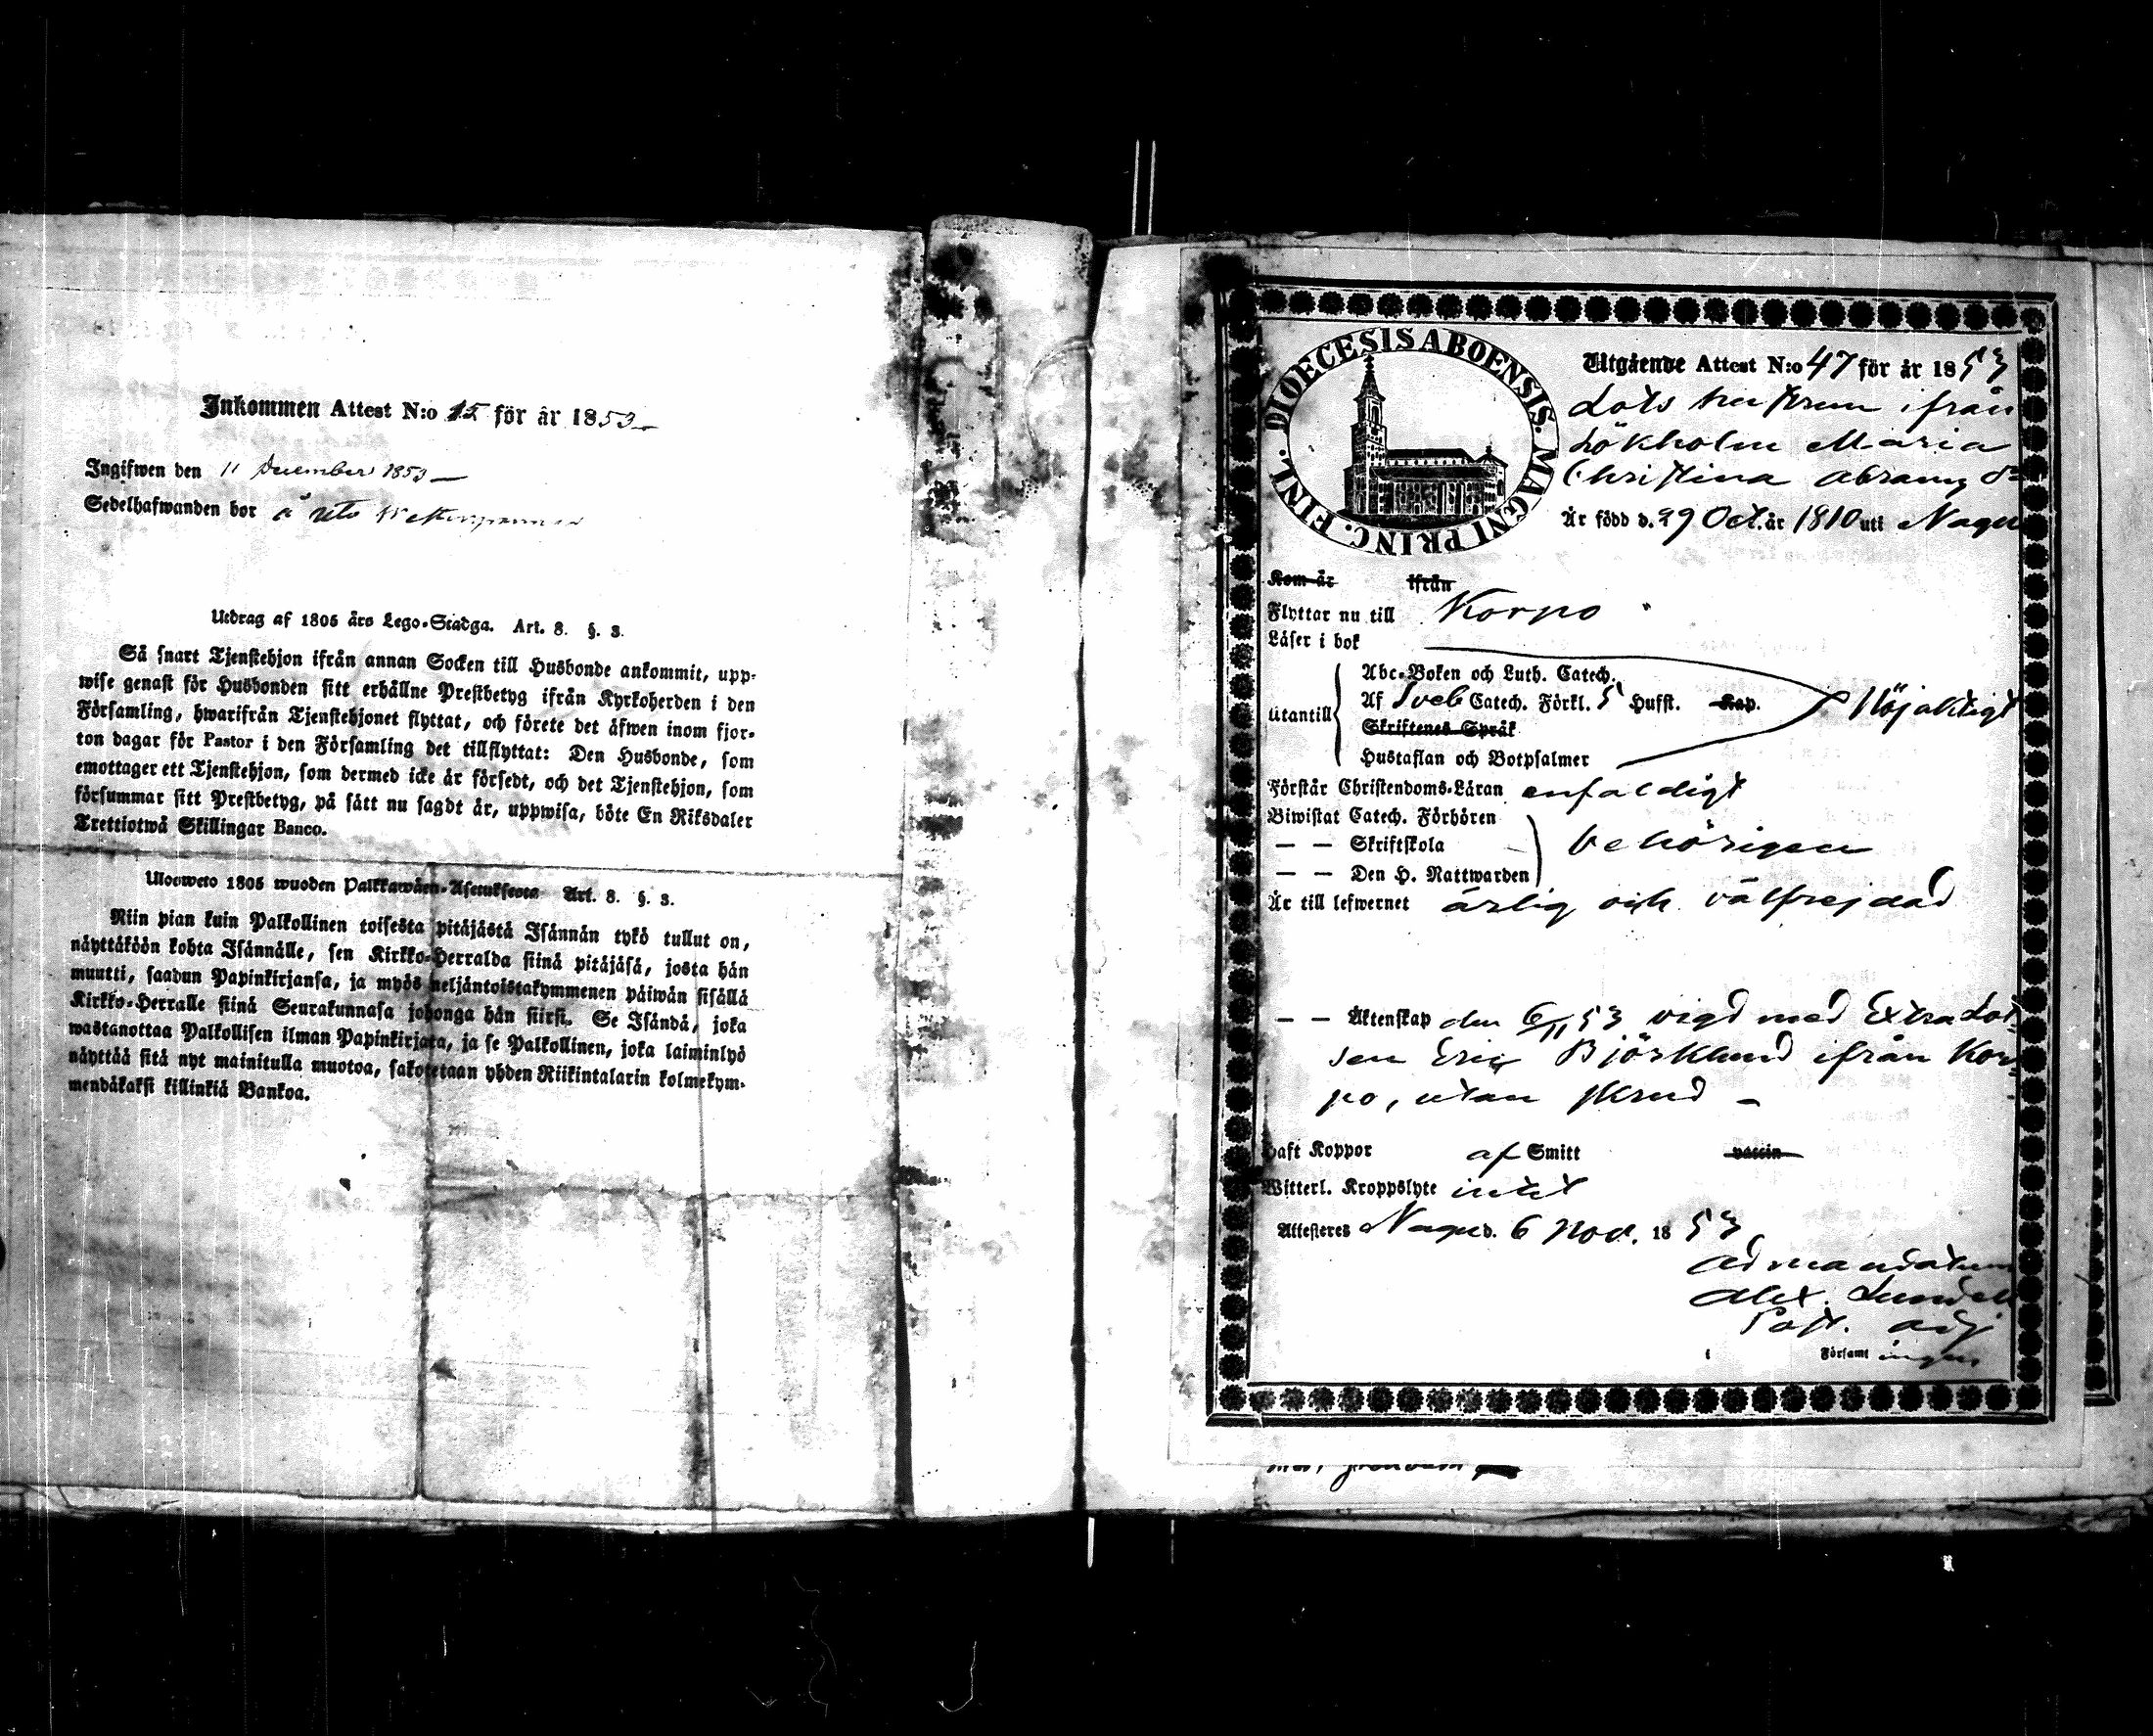 Inkommen Attest N:o 15 för år 1853
Ingifwen den 11 December 1853
Sedelhafwanden bor å Utö
Utdrag af 1805 års Lego-Stadga. Art. 8. §. 3.
Så snart Tjenstehjon ifrån annan Socken till Husbonde ankommit, upp-
wise genast för Husbonden sitt erhållne Prestbetyg ifrån Kyrkoherden i den
Församling, hwarifrån Tjenstehjonet flyttat, och förete det äfwen inom fjor-
ton dagar för Pastor i den Församling det tillflyttat: Den Husbonde, som
emottager ett Tjenstehjon, som dermed icke är försedt, och det Tjenstehjon, som
försummar sitt Prestbetyg, på sätt nu sagdt är, uppwisa, böte En Riksdaler
Trettiotwå Skillingar Banco.
Ulosweto 1805 wuoden Palkkawäen-Asetuksesta Art. 8. §. 3.
Niin pian kuin Palkollinen toisesta pitäjästä Isännän tykö tullut on,
näyttäköön kohta Isännälle, sen Kirkko-Herralda siinä pitäjäsä, josta hän
muutti, saadun Papinkirjansa, ja myös neljäntoistakymmenen päiwän sisällä
Kirkko-Herralle siinä Seurakunnasa johonga hän siirsi. Se Isändä, joka
wastanottaa Palkollisen ilman Papinkirjata, ja se Palkollinen, joka laiminlyö
näyttää sitä nyt mainitulla muotoa, sakotetaan yhden Riikintalarin kolmekym-
mendäkaksi killinkiä Bankoa.
DIOECESIS ABOENSIS. MAGNI PRINC. FINL.
Utgående Attest N:o 47 för år 1853
Lots hustrun ifrån
Lökholm Maria
Christina Abrams dr
Är född d. 29 Oct. år 1810 uti Nagu
Kom år ifrån
Flyttar nu till Korpo
Läser i bok
Abc-Boken och Luth. Catech.
Utantill Af Sveb Catech. Förkl. 5 Hufst. Kap. Nöjaktigt
Skriftenes Språk
Hustaflan och Botpsalmer
Förstår Christendoms-Läran enfaldigt
Biwistat Catech. Förhören
— — Skriftskola behörigen
— — Den H. Nattwarden
Är till lefwernet ärlig och välfrejdad
— — Äktenskap den 6/11 53 vigd med Extra Lot-
sen Eric Björklund ifrån Kor-
po, utan skrud —
Haft Koppor af Smitt vaccin
Witterl. Kroppslyte intet
Attesteres Nagu d. 6 Nov. 1853
ad mandatum
Alex. Lundell
Past. adj
i Församl ingen